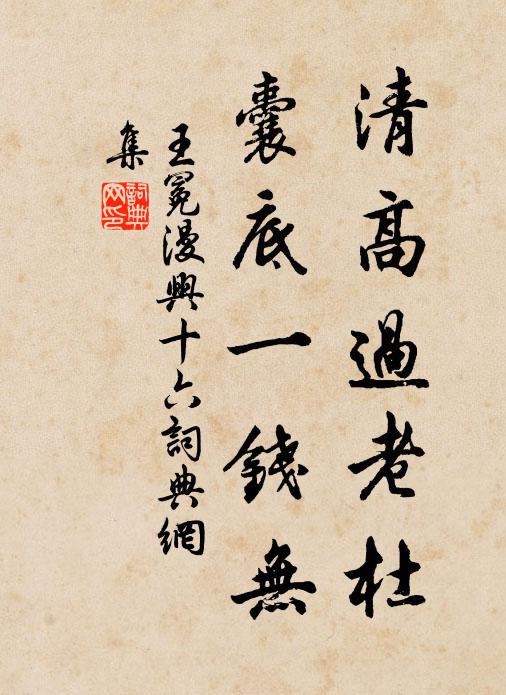 清高過老杜
囊底一錢無
王冕漫興十六詞典網
集
詞典
网印